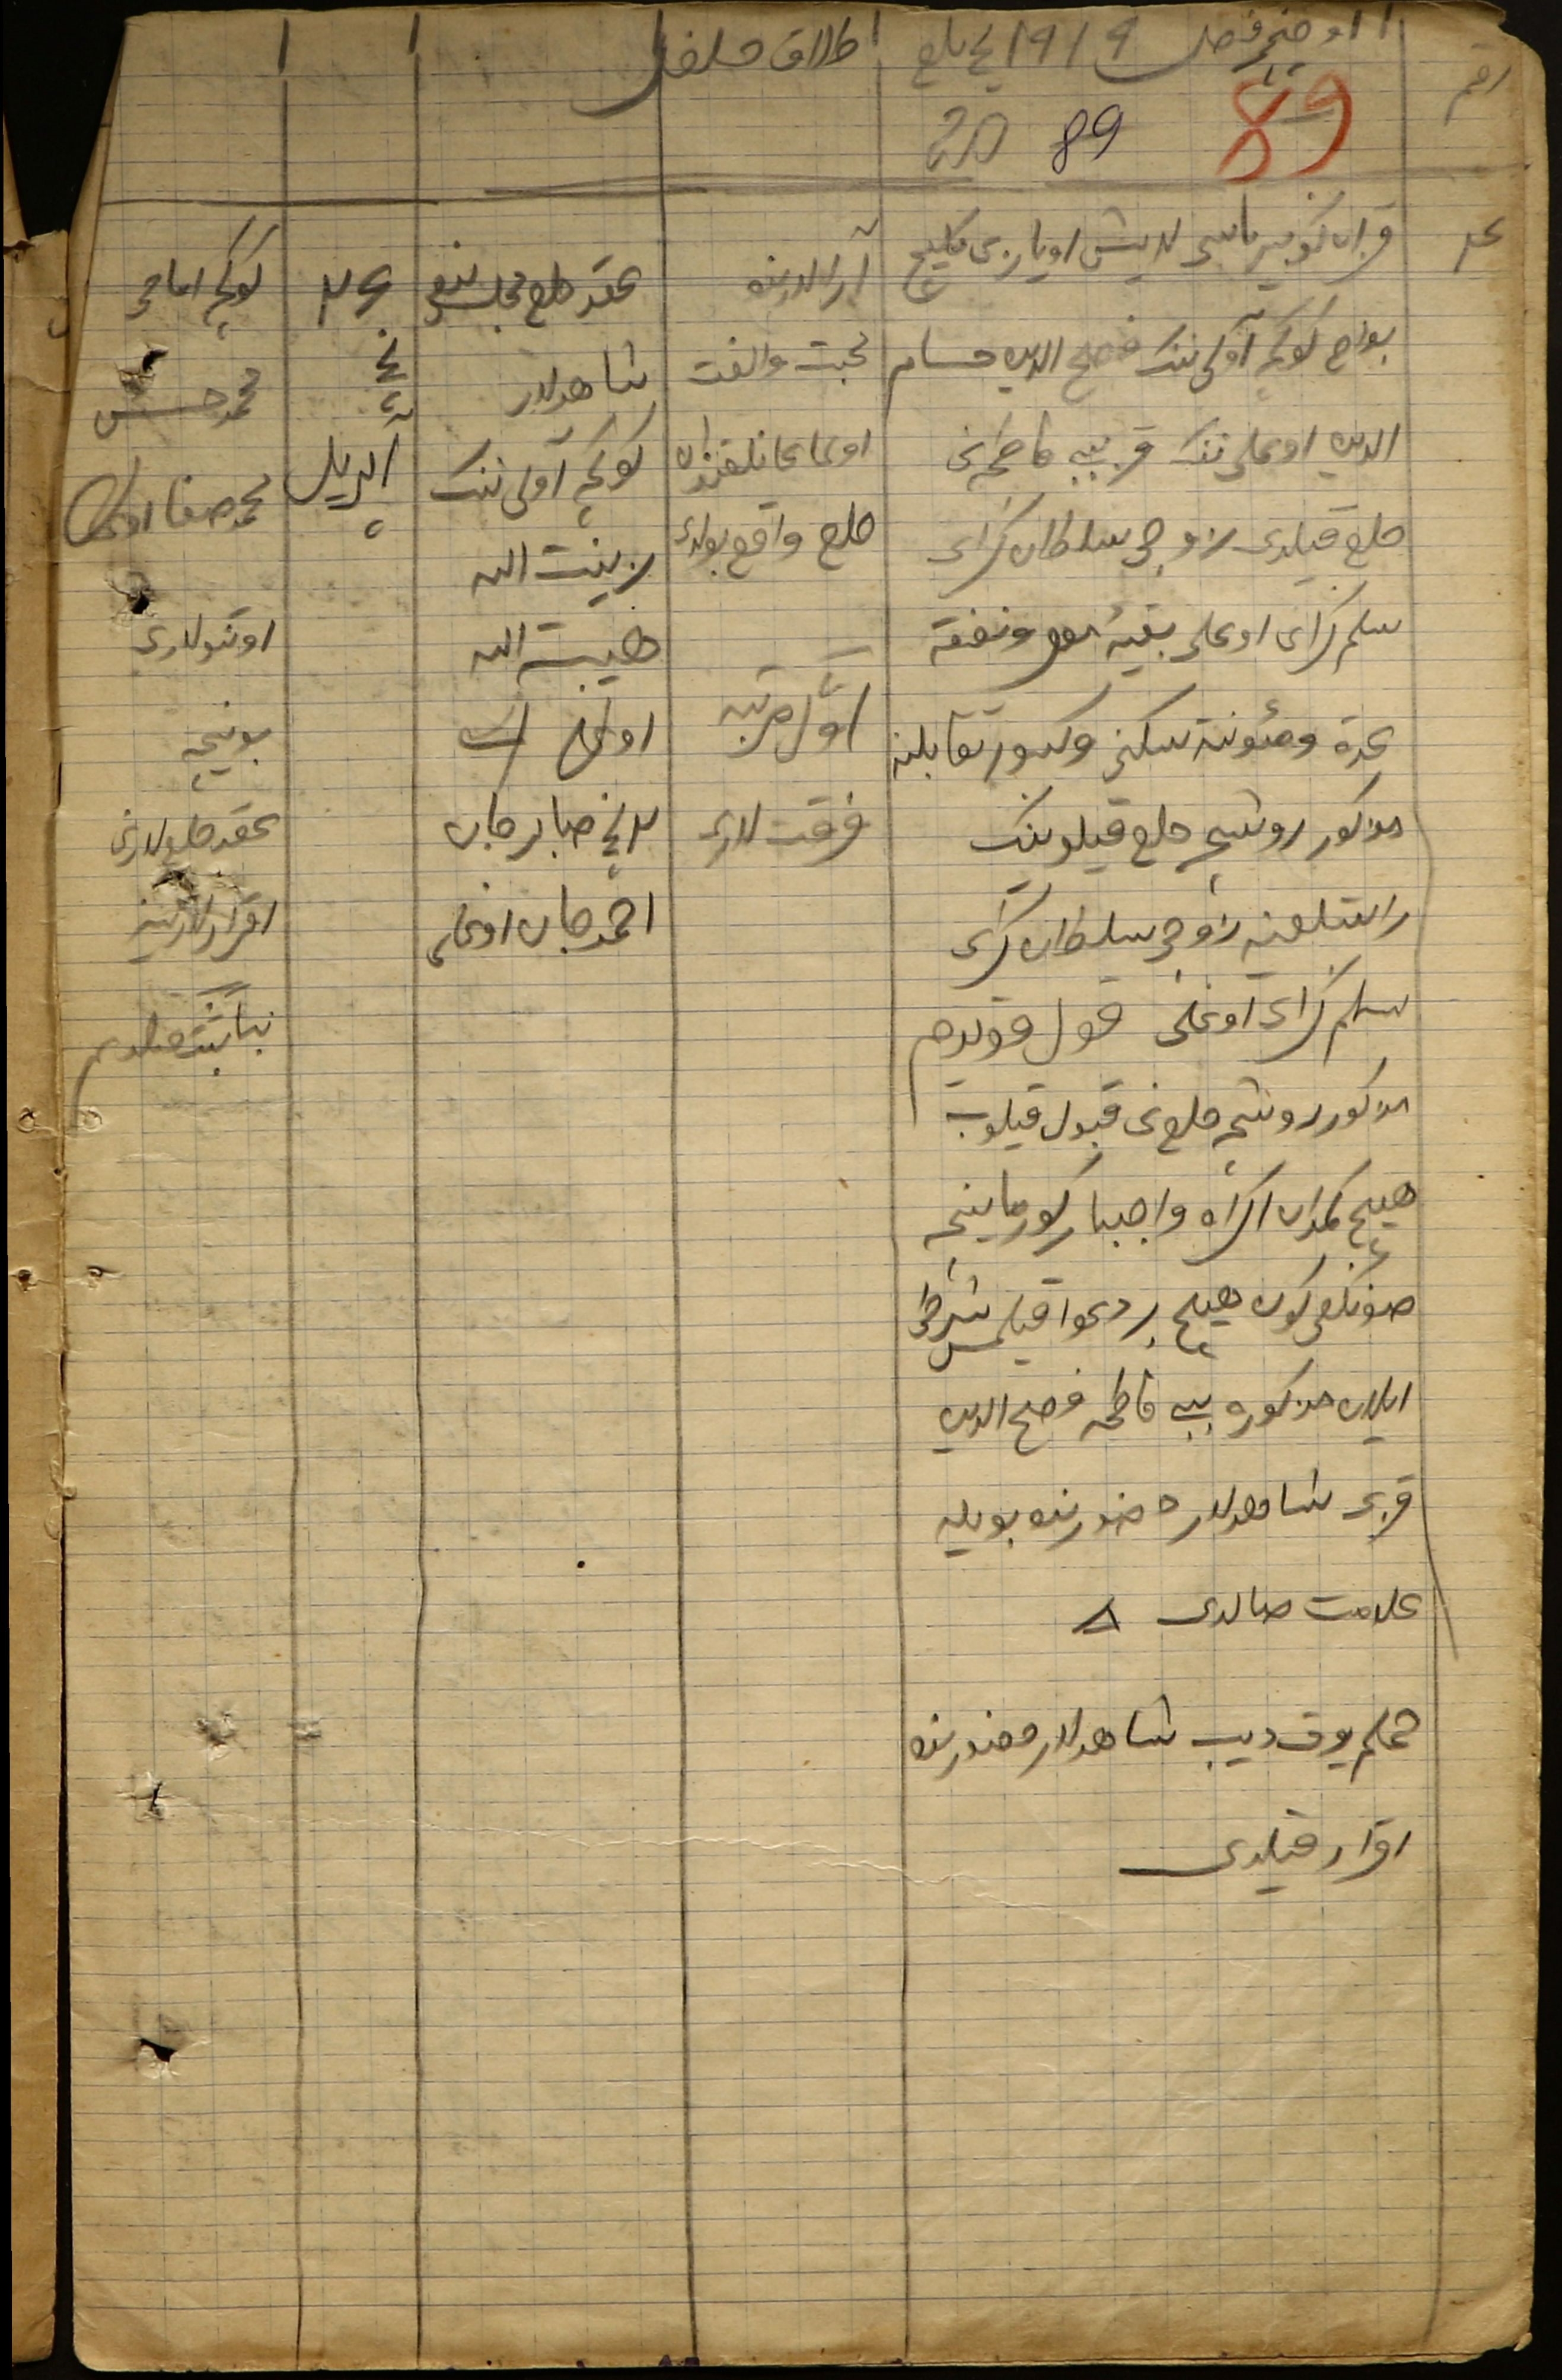 رقم
اوچنچی فصل 1919 نچی یلغ
طلاق خلفل
89
89
20
عدد
قزان گوبیرناسی لایش اویازی
بواچ کوکچه آولی ننک فصیح الدین حسام
الدین اوغلی ننک قزی بیبی فاطمه نی
خلع قیلدی زوجی سلطان کرای
سلیم کرای اوغلی بقیۀ مهر ونفقۀ
عدة ومئونة سکنی وکسوة تقابلنه
مذکور روشچه خلع قیلوینک
راستلغینه زوجی سلطان کرای
سلیم کرای اوغلی قول قویدم
مذکور روشچه خلع نی قبول قیلوب
هیچ کمدان اکراه واجبار کورماینچه
صونکغی کون هیچ بر دعوا قیلمس شرطی
ایلان مذکوره بیبی فاطمه فصیح الدین
قزی شاهدلار حضورنده بویله
علامت صالدی
حملم یوق دیب شاهدلار حضورنده
اقرار قیلدی
آرالارنده
محبت والفت
اولماغانلقندان
خلع واقع بولدی
اول مرتبه
فرقت لاری
عقد خلع مجلسنده
شاهدلار
کوکچه آولی ننک
زینت الله
هیبت الله
اوغلی
صابرجان
احمدجان اوغلی
۲۶
نچی
آپریل
کوکچه امامی
محمد حسن
محمد صفا اوغلی
اوتنولاری
بوینچه
عقد خلع لارنی
اقرارلارینه
بناءً ثبت قیلدم